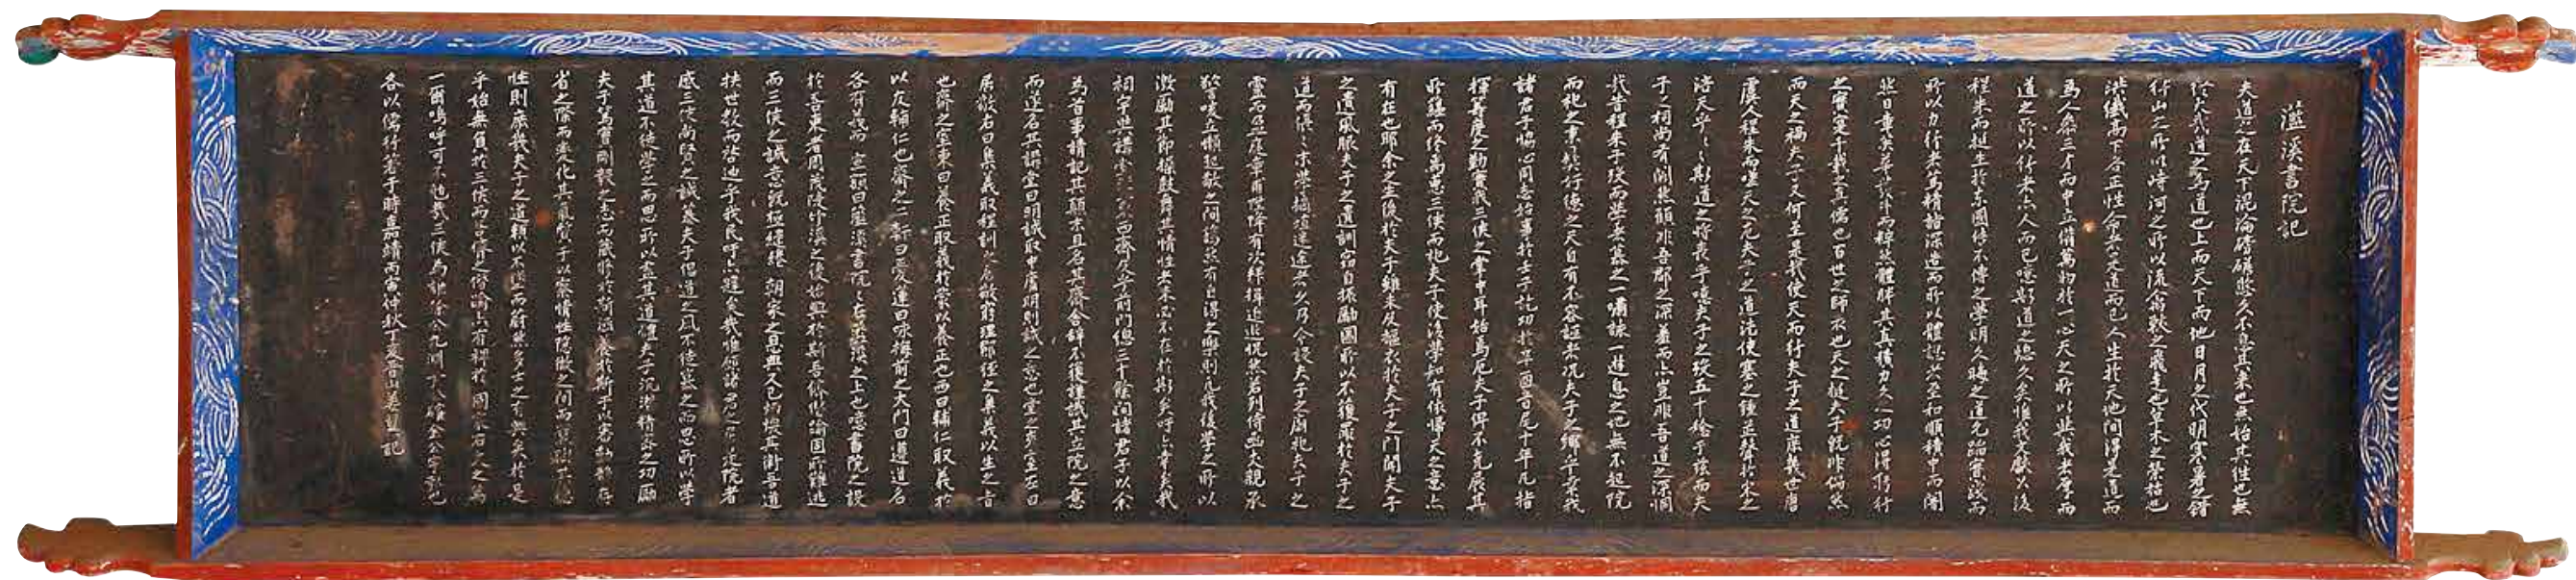 灆溪書院記
夫道之在天下混淪磅礴悠久不息其來也無始其往也無
終大哉道之爲道也上而天下而地日月之代明寒暑之錯
行山之所以峙河之所以流禽獸之飛走也草木之榮枯也
洪纖高下各正性命無非是道而已人生於天地間得是道而
爲人參三才而中立備萬物於一心天之所以與我者厚而
道之所以行者亦人而已噫斯道之熄久矣惟我文獻公後
程朱而挺生於東國倡不傳之學明久晦之道允蹈實踐而
所以力行者篤精詣深造而所以體認者至和順積中而闇
然日章英華於外而粹然體胖其真積力久心功心得躬行
之實寔千載之真儒也百世之師表也天之挺夫子旣非偶然
而天之禍夫子又何至是哉使天而行夫子之道庶幾世唐
虞人程朱而噫天之厄夫子之道
天乎天乎斯道之將喪乎噫夫子之歿五十餘于玆而夫
子之祠尚有闕焉顧非吾郡之深羞而亦豈非吾道之深憫
哉昔程朱子歿而學者慕之一嘯詠一遊息之地無不起院
而祀之東於行德之天自有不容誣者況夫子之鄕乎幸我
諸君子協心同志始事於壬子訖功於辛酉首尾十年凡指
揮籌度之勤實我三侯之掌中耳始焉尼夫子俾不克展其
所蘊而終焉惠三侯而祀夫子使後學知有依歸天之意亦
有在也耶余之生後於夫子雖未及摳衣於夫子之門聞夫子
之遺風服夫子之遺訓竊自振勵圖所以不獲罪於夫子之
道而倀倀末學擿埴迷途者久乃今設夫子之廟祀夫子之
靈而春秋享有次絳趨退怳然若列侍函丈親承
警咳立懶起敎之間藹然有自得之樂則凡我後學之所以
激勵其節操鼓舞其情性者未必不在於斯矣呼亦幸矣哉
祠宇與講堂東西齋及前門總三十餘間諸君子以余
爲首事請記其顚末且名其齋舍辭不獲謹識其立院之意
而遂名其講堂曰明誠取中庸明則誠之意也堂之夾室左曰
居敬右曰集義取程訓之居敬窮理鄒經之集義以生之旨
也齋之室東曰養正取義於蒙以養正也西曰輔仁取義於
以友輔仁也齋之二軒曰愛蓮曰咏梅前之大門曰遵道名
各有義而宣額曰灆溪書院院在灆溪之上也噫書院之設
於吾東者周茂陵竹溪之後始興於斯吾儕僭踰固所難逃
而三侯之誠意旣極繾綣朝家之恩典又已炳煥其衛吾道
扶世敎而啓迪乎我民吁亦韙矣哉惟願諸君之居是院者
感三侯尚賢之誠慕夫子倡道之風不徒感之而思所以學
其道不徒學之而思所以盡其道體夫子沉潛精密之功勵
夫子篤實剛毅之志而藏於斯游養於斯于以密動於存
省之際而變化其氣質于以察情性隱微之間而
性則庶我夫子之道賴以不墜而蔚然多士之有興矣於是
乎始無負於三侯而吾儕之僭踰亦有辭於國家右文之
一爾嗚呼可不勉哉三侯爲郡
各以儒行著于時嘉靖丙寅仲秋下晉山姜翼記